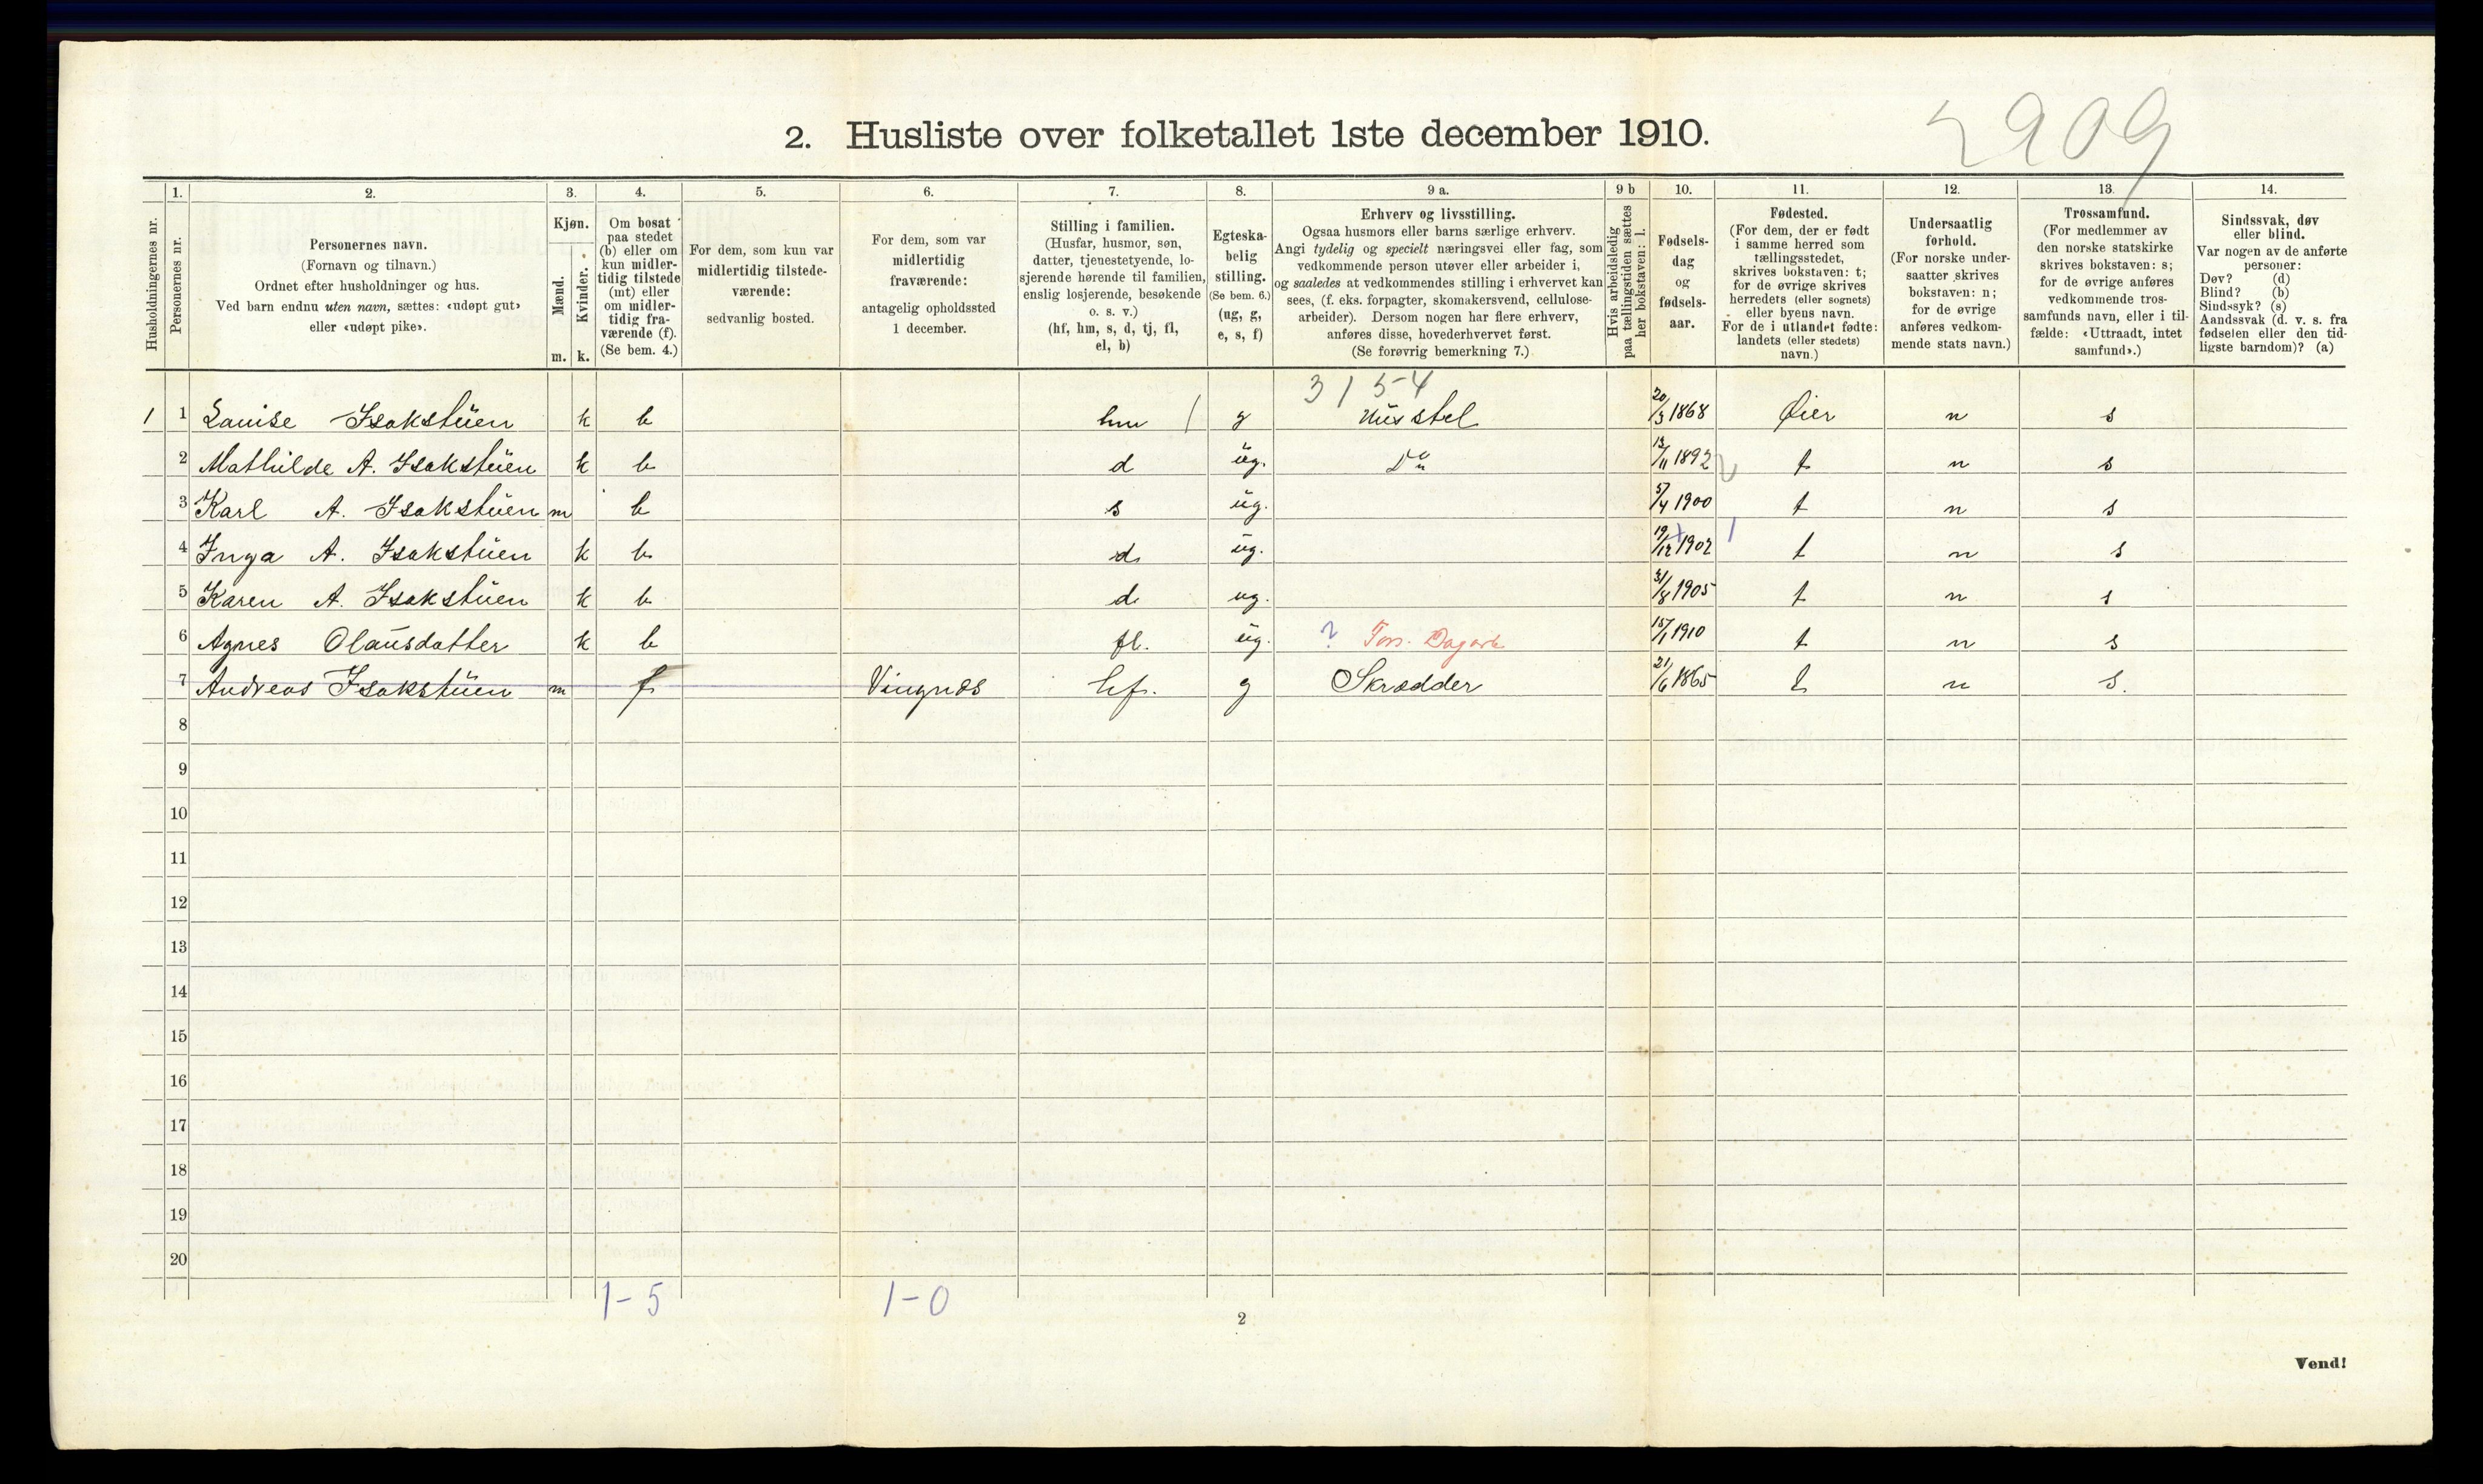 2909
2. Husliste over folketallet 1ste december 1910.
Husholdningernes nr.
1. Personernes nr.
2. Personernes navn.
(Fornavn og tilnavn.)
Ordnet efter husholdninger og hus.
Ved barn endnu uten navn, sættes: «udøpt gut»
eller «udøpt pike».
3. Kjøn.
Mænd. Kvinder.
m. k.
4. Om bosat
paa stedet
(b) eller om
kun midler-
tidig tilstede
(mt) eller
om midler-
tidig fra-
værende (f).
(Se bem. 4.)
5. For dem, som kun var
midlertidig tilstede-
værende:
sedvanlig bosted.
6. For dem, som var
midlertidig
fraværende:
antagelig opholdssted
1 december.
7. Stilling i familien.
(Husfar, husmor, søn,
datter, tjenestetyende, lo-
sjerende hørende til familien,
enslig losjerende, besøkende
o. s. v.)
(hf, hm, s, d, tj, fl,
el, b)
8. Egteska-
belig
stilling.
(Se bem. 6.)
(ug, g,
e, s, f)
9 a. Erhverv og livsstilling.
Ogsaa husmors eller barns særlige erhverv.
Angi tydelig og specielt næringsvei eller fag, som
vedkommende person utøver eller arbeider i,
og saaledes at vedkommendes stilling i erhvervet kan
sees, (f. eks. forpagter, skomakersvend, cellulose-
arbeider). Dersom nogen har flere erhverv,
anføres disse, hovederhvervet først.
(Se forøvrig bemerkning 7.)
9 b Hvis arbeidsledig
paa tællingstiden sættes
her bokstaven: l.
10. Fødsels-
dag
og
fødsels-
aar.
11. Fødested.
(For dem, der er født
i samme herred som
tællingsstedet,
skrives bokstaven: t;
for de øvrige skrives
herredets (eller sognets)
eller byens navn.
For de i utlandet fødte:
landets (eller stedets)
navn.)
12. Undersaatlig
forhold.
(For norske under-
saatter skrives
bokstaven: n;
for de øvrige
anføres vedkom-
mende stats navn.)
13. Trossamfund.
(For medlemmer av
den norske statskirke
skrives bokstaven: s;
for de øvrige anføres
vedkommende tros-
samfunds navn, eller i til-
fælde: «Uttraadt, intet
samfund».)
14. Sindssvak, døv
eller blind.
Var nogen av de anførte
personer:
Døv? (d)
Blind? (b)
Sindssyk? (s)
Aandssvak (d. v. s. fra
fødselen eller den tid-
ligste barndom)? (a)
3154
1 1 Lauise Isakstuen k b hm g Husstel 20/3 1868 Øier n s
2 Mathilde A. Isakstuen k b d ug. Do 13/11 1892 t n s
3 Karl A. Isakstuen m b s ug. 5/4 1900 t n s
4 Inga A. Isakstuen k b d ug. 19/12 1902 t n s
5 Karen A. Isakstuen k b d ug. 31/8 1905 t n s
6 Agnes Olausdatter k b fl. ug. ? Fors. Dagarb 15/1 1910 t n s
7 Andreas Isakstuen m f Vingnæs hf. g Skrædder 21/6 1865 t n s.
8
9
10
11
12
13
14
15
16
17
18
19
20
1-5 1-0
2
Vend!